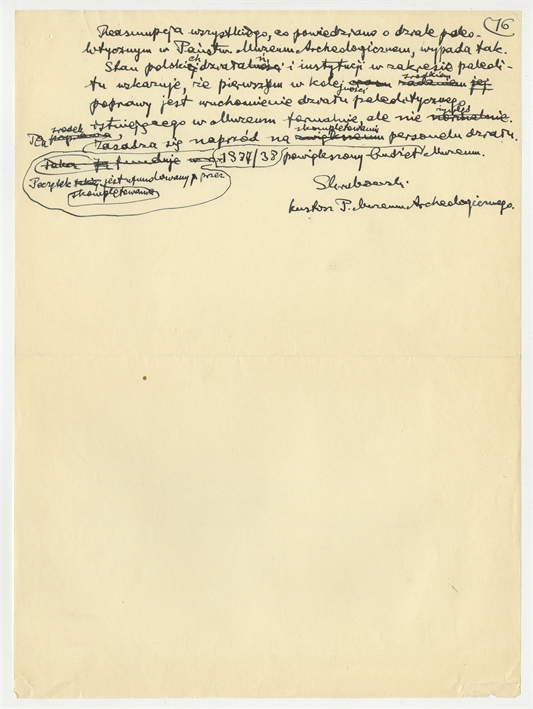 76
Reasumpcja wszystkiego, co powiedziano o dziale paleo-
litycznym w Państw. Muzeum Archeologicznem, wypada tak.
Stan polskich działalni i instytucji w zakresie paleoli-
tu wskazuje, że pierwszym w kolejności środkiem
poprawy jest uruchomienie działu paleolitycznego,
istniejącego w Muzeum formalnie, ale nie
Ten środek zasadza się naprzód na skompletowaniu personelu działu.
1937/38 powiększony budżet Muzeum.
Początek jest ufundowany przez
skompletowanie
kustosz P. Muzeum Archeologicznego.